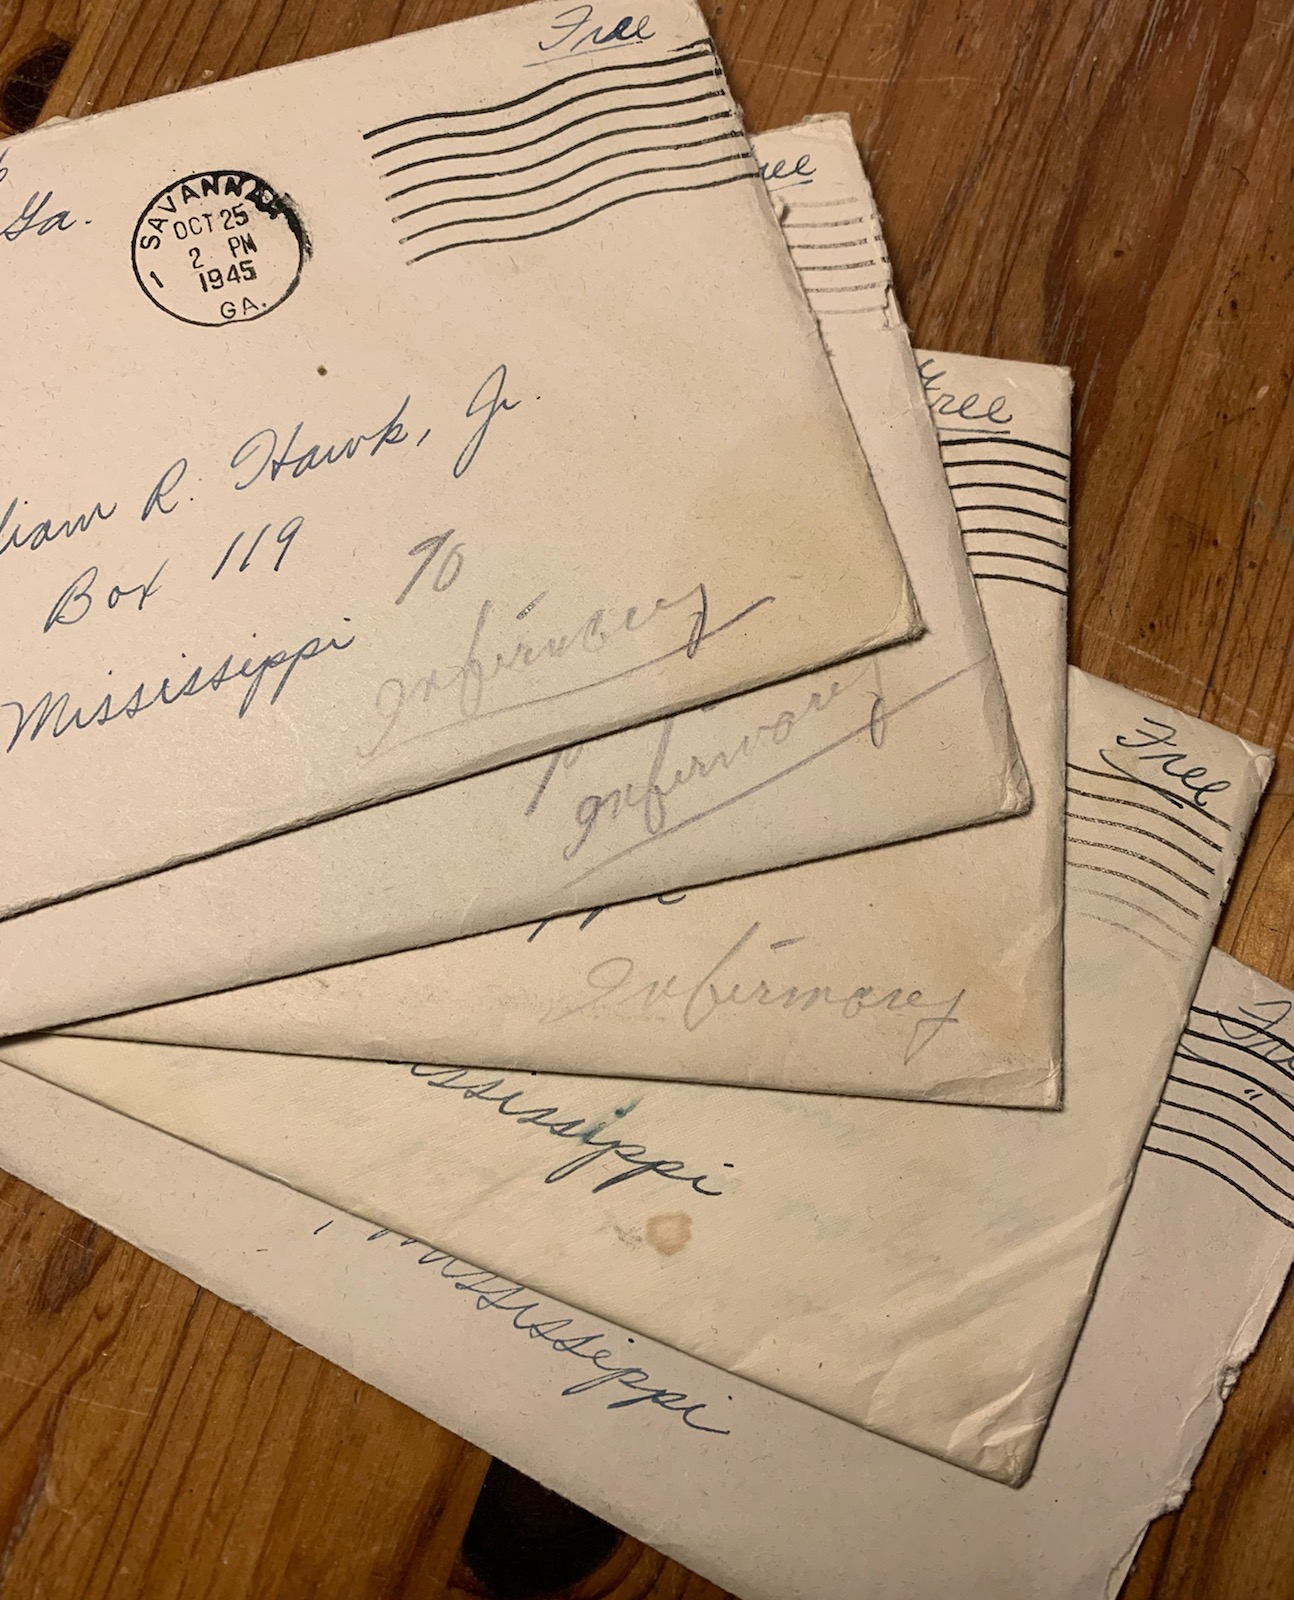 Free
Ga.
SAVANNAH
OCT 25
2 PM
1945
1
GA.
liam R. Hawk, Jr.
Box 119
Mississippi
To
Infirmary
ee
To
Infirmary
Free
Infirmary
Free
ssissippi
Mississippi